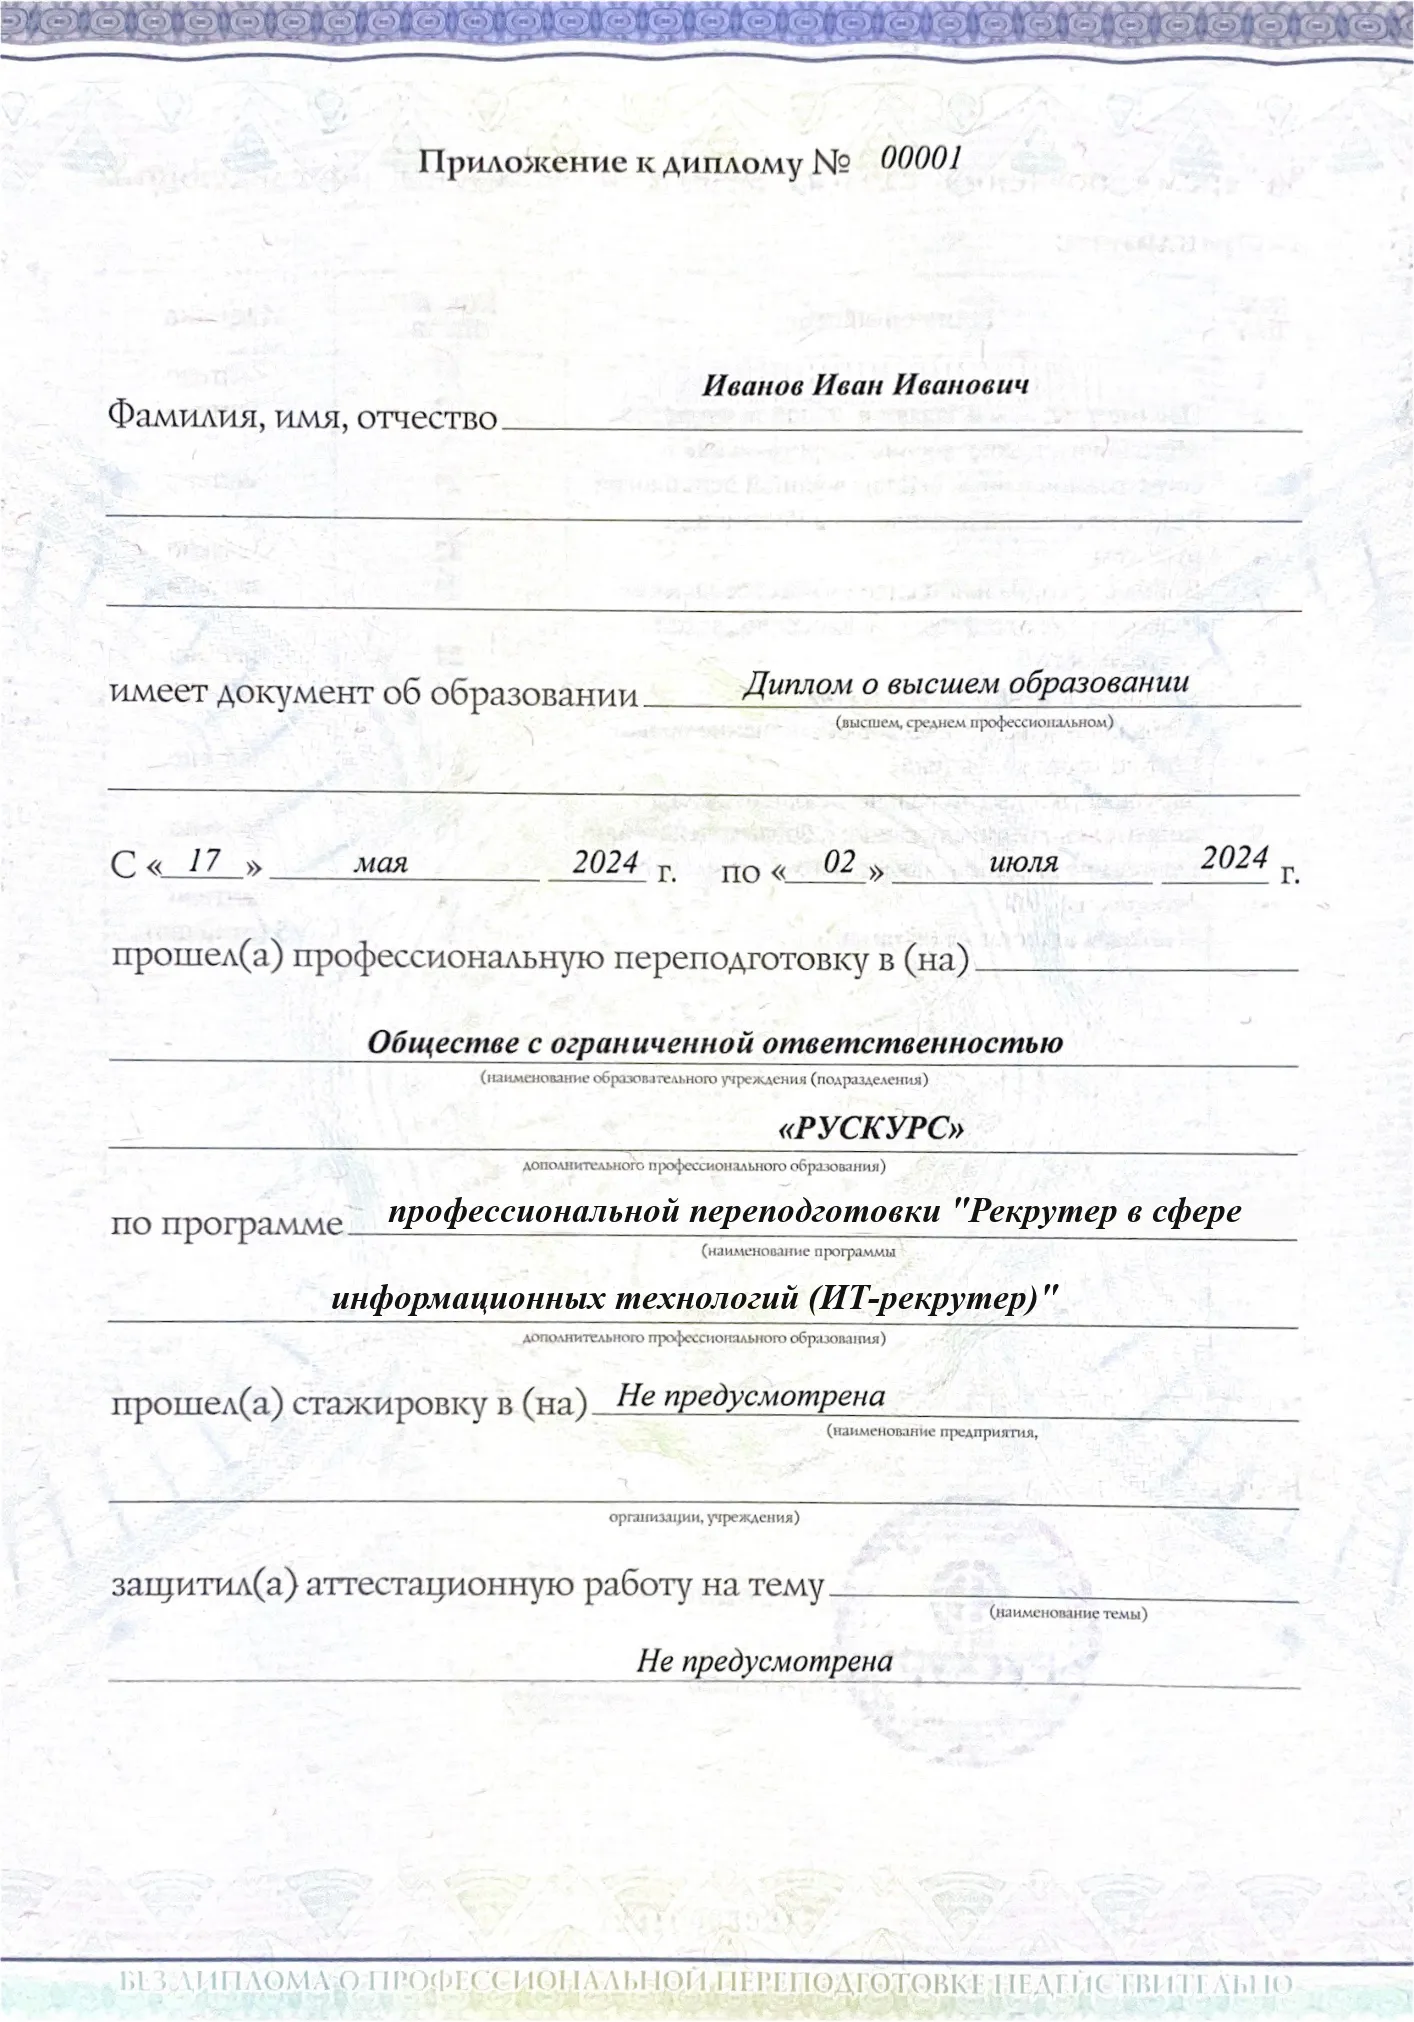 Приложение к диплому № 00001
Иванов Иван Иванович
Фамилия, имя, отчество
имеет документ об образовании Диплом о высшем образовании
(высшем, среднем профессиональном)
С « 17 » мая 2024 г. по « 02 » июля 2024 г.
прошел(а) профессиональную переподготовку в (на)
Обществе с ограниченной ответственностью
(наименование образовательного учреждения (подразделения)
«РУСКУРС»
дополнительного профессионального образования)
по программе профессиональной переподготовки "Рекрутер в сфере
(наименование программы
информационных технологий (ИТ-рекрутер)"
дополнительного профессионального образования)
прошел(а) стажировку в (на) Не предусмотрена
(наименование предприятия,
организации, учреждения)
защитил(а) аттестационную работу на тему
(наименование темы)
Не предусмотрена
БЕЗ ДИПЛОМА О ПРОФЕССИОНАЛЬНОЙ ПЕРЕПОДГОТОВКЕ НЕДЕЙСТВИТЕЛЬНО